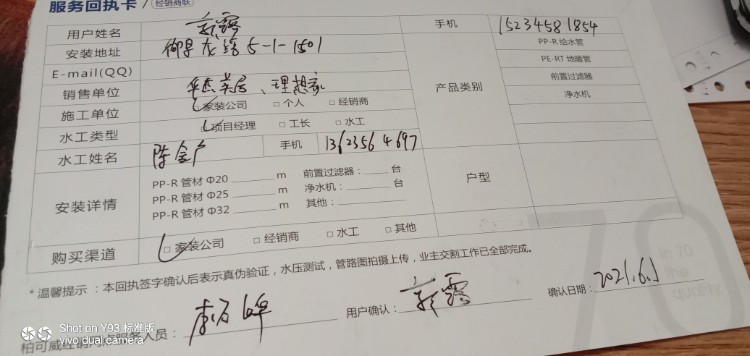 服务回执卡 / 经销商联
用户姓名 手机 15234581854
安装地址 御景龙湾 5-1-1501 PP-R 给水管
E-mail(QQ) PE-RT 地暖管
销售单位 产品类别 前置过滤器
施工单位 ☑家装公司 □个人 □经销商 净水机
水工类型 ☑项目经理 □工长 □水工
水工姓名 陈金广 手机 13623564697
安装详情 PP-R 管材 Φ20 ____ m 前置过滤器：____ 台 户型
PP-R 管材 Φ25 ____ m 净水机：____ 台
PP-R 管材 Φ32 ____ m 其他：____
购买渠道 ☑家装公司 □经销商 □水工 □其他
70
in 70
the
quality
*温馨提示：本回执签字确认后表示真伪验证，水压测试，管路图拍摄上传，业主交割工作已全部完成。
服务人员： 用户确认： 确认日期：2021.6.1
Shot on Y93 标准版
vivo dual camera